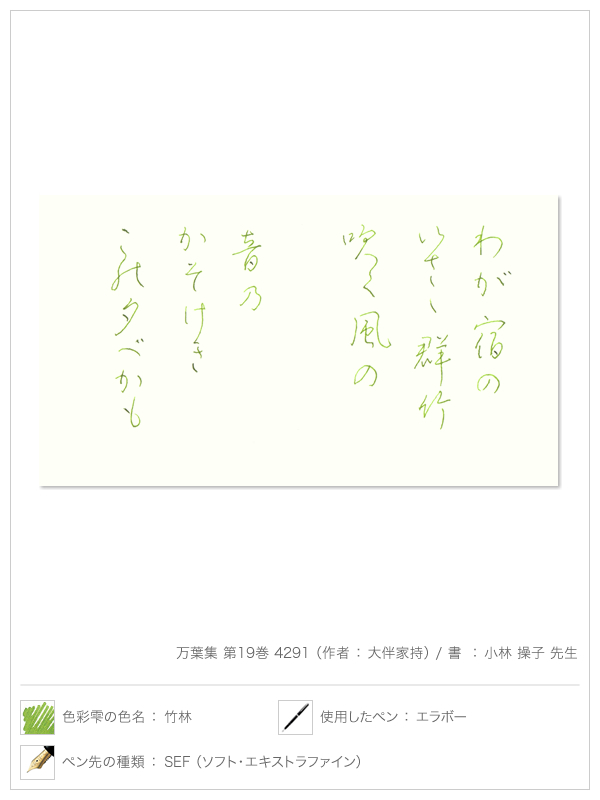 わが宿の
いさゝ群竹
吹く風の
音乃
かそけき
この夕べかも
万葉集 第19巻 4291（作者：大伴家持）/ 書 ：小林 操子 先生
色彩雫の色名：竹林
使用したペン：エラボー
ペン先の種類：SEF（ソフト・エキストラファイン）